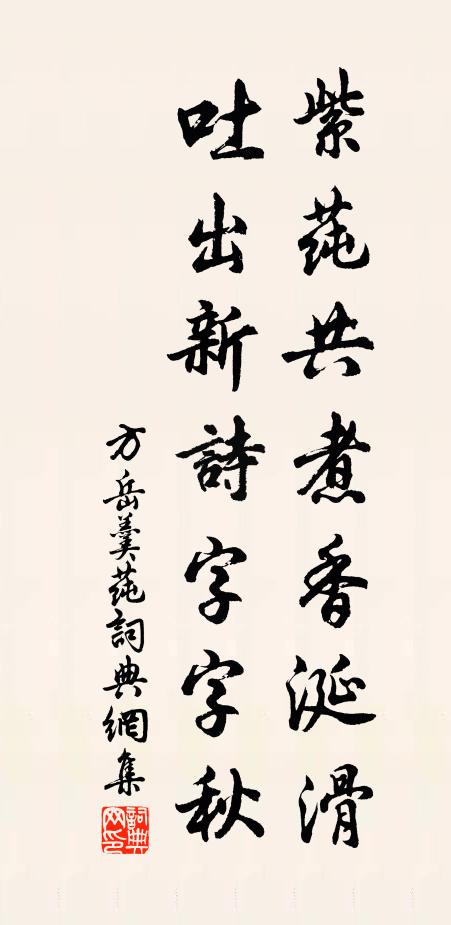 紫莼共煮香涎滑
吐出新詩字字秋
方岳羹莼詞典網集
詞典網印